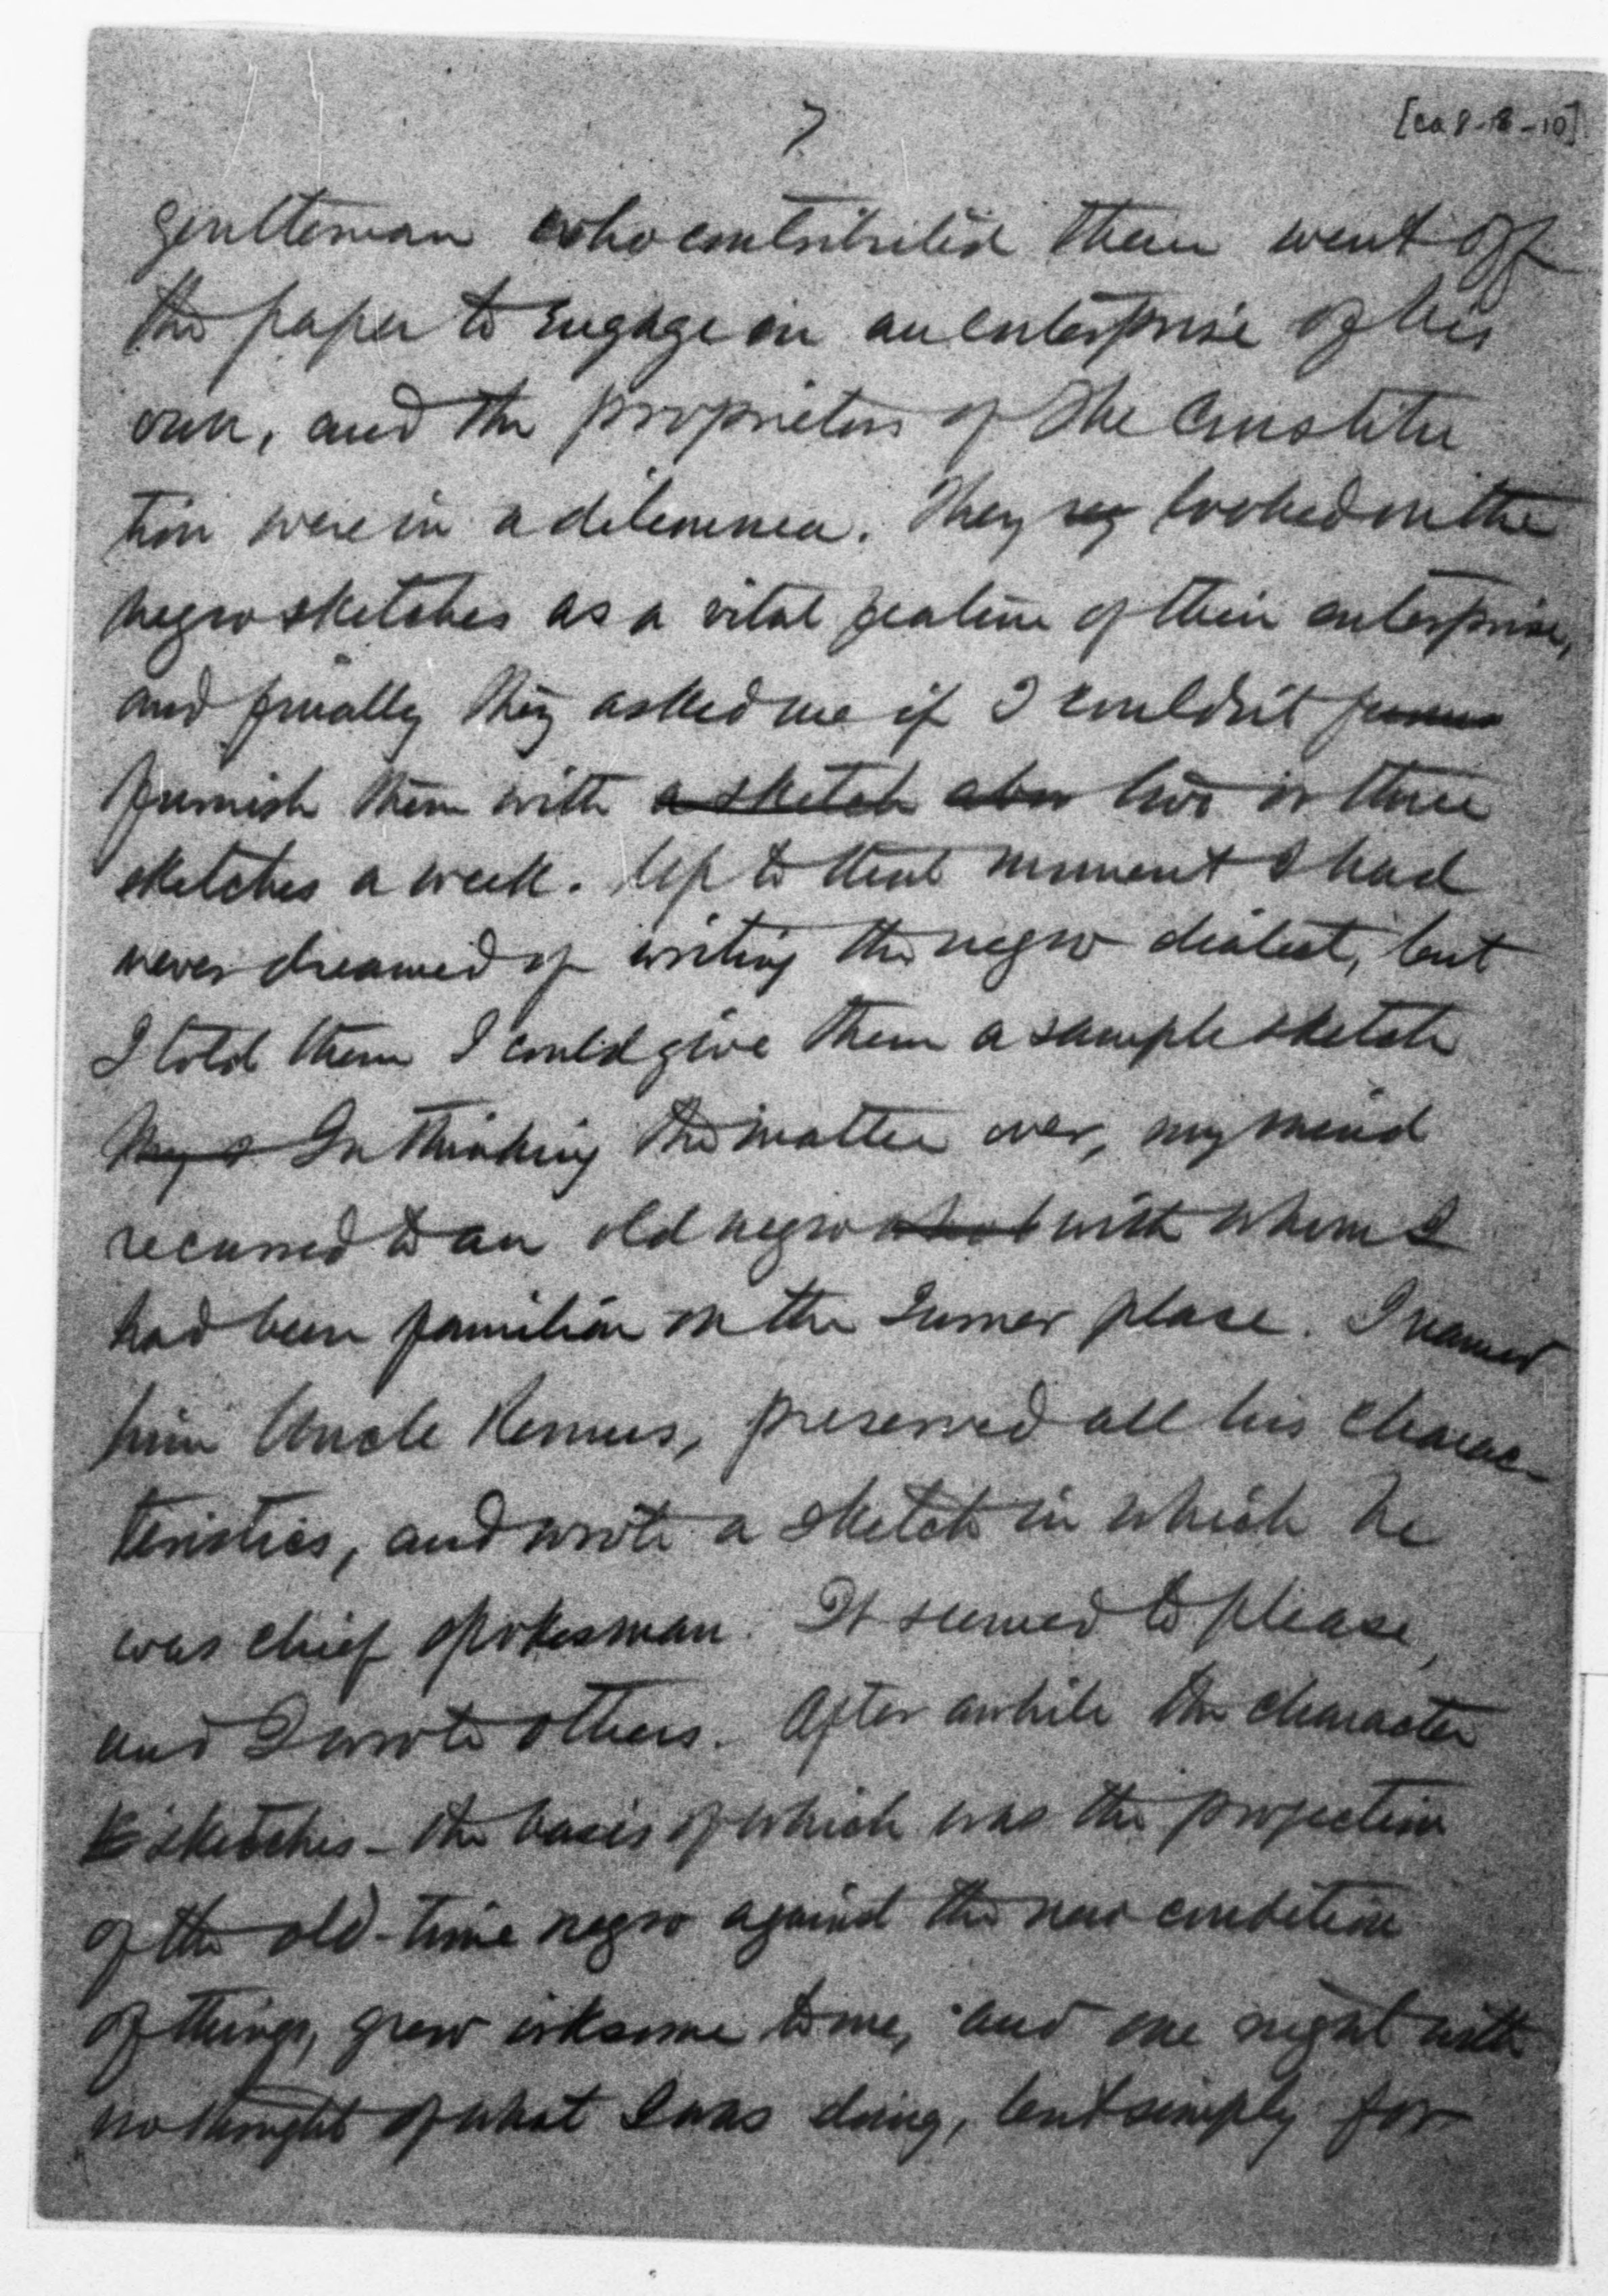 7
[ca 8-8-10]
gentleman who contributed them went off
the paper to engage in an enterprise of his
own, and the proprietors of The Constitu
tion were in a dilemma. They looked on the
negro sketches as a vital feature of their enterprise,
and finally they asked me if I couldn't
furnish them with a sketch abou two or three
sketches a week. Up to that moment I had
never dreamed of writing the negro dialect, but
I told them I could give them a sample sketch
My s In thinking the matter over, my mind
recurred to an old negro who with whom I
had been familiar on the Turner place. I named
him Uncle Remus, preserved all his charac-
teristics, and wrote a sketch in which he
was chief spokesman. It seemed to please,
and I wrote others. After awhile the character
sketches - the basis of which was the projection
of the old-time negro against the new condition
of things, grew irksome to me, and one night with
no thought of what I was doing, but simply for